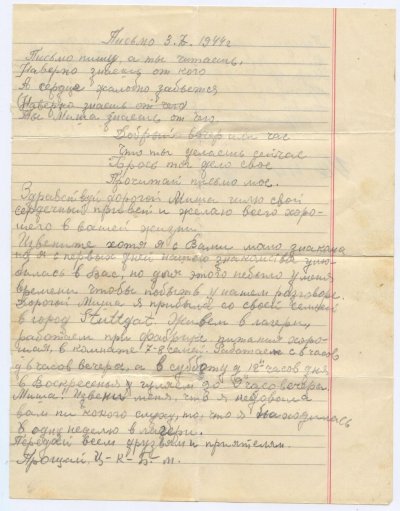 Письмо 3.X. 1944г
Письмо пишу, а ты читаешь,
Наверно знаешь от кого
А сердце жалобно забьется
Наверно знаешь от чего
Ты Миша знаешь от чего.
Добрый вечер или час
Что ты делаешь сейчас
Брось ты дело свое
Прочитай письмо мое.
Здравствуй дорогой Миша шлю свой
сердечный привет и желаю всего хоро-
шего в вашей жизни.
Извените хотя я с Вами мало знакома
но я с первых дней нашего знакомства улю
билась в Вас, но для этого небыло у меня
времени чтобы побыть у нашем разговоре.
Дорогой Миша я прибыла со своей семьей
в город Stuttgat. Живем в лагери,
работаем при фабрике, питания хоро-
шая, в комнате 7-8 семей. Работаем с 6 часов
до 6 часов вечера, а в субботу до часов дня
в Воскресенья гуляем до 9 вечера
Миша! Извени меня, что я недовала
вам ни какого слуху, то, что я находилась
в одну неделю в лагери.
Передай всем друзьям и приятелям.
Прощай, Ц-К-Б- м.